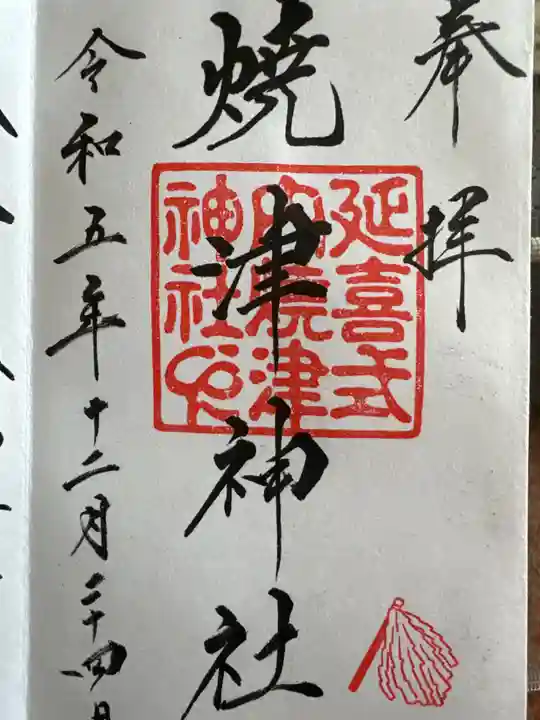 奉拝
焼津神社
延喜式
内焼津
神社印
令和五年十二月二十四日